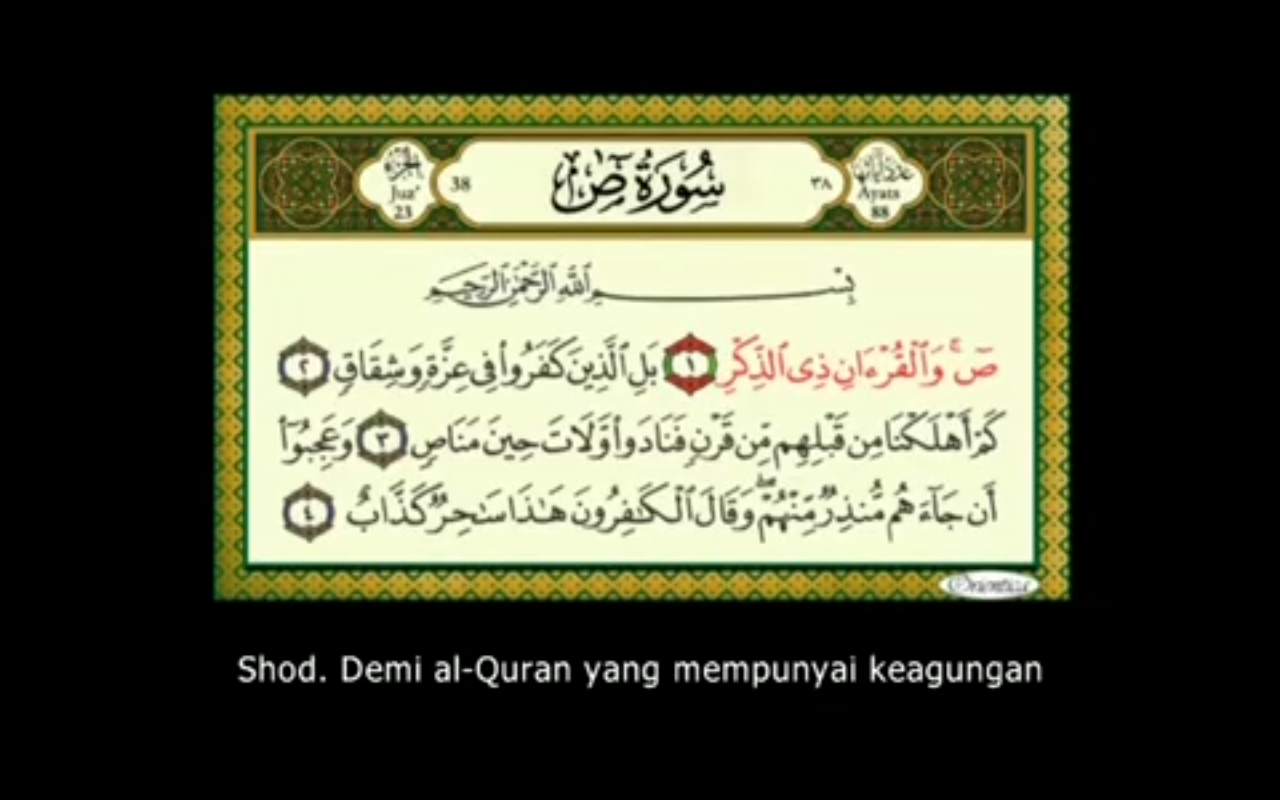 الجزء
Juz'
23
38
سُورَةُ صٓ
٣٨
عدد آياتها
Ayats
88
بِسْمِ ٱللَّهِ ٱلرَّحْمَٰنِ ٱلرَّحِيمِ
صٓ ۚ وَٱلْقُرْءَانِ ذِى ٱلذِّكْرِ ١ بَلِ ٱلَّذِينَ كَفَرُوا۟ فِى عِزَّةٍ وَشِقَاقٍ ٢
كَمْ أَهْلَكْنَا مِن قَبْلِهِم مِّن قَرْنٍ فَنَادَوا۟ وَّلَاتَ حِينَ مَنَاصٍ ٣ وَعَجِبُوٓا۟
أَن جَآءَهُم مُّنذِرٌ مِّنْهُمْ ۖ وَقَالَ ٱلْكَٰفِرُونَ هَٰذَا سَٰحِرٌ كَذَّابٌ ٤
Shod. Demi al-Quran yang mempunyai keagungan